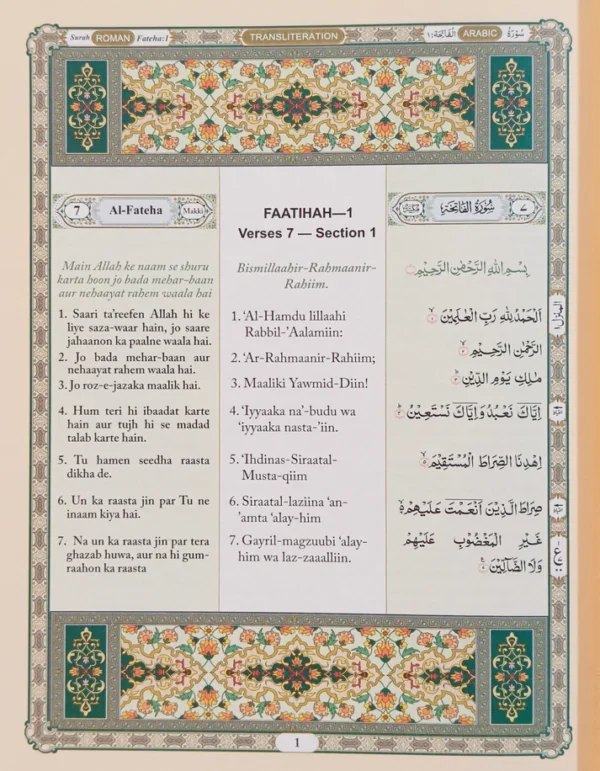 Surah ROMAN Fateha:1
TRANSLITERATION
اَلْفَاتِحَة:١ ARABIC سُوْرَةُ
7 Al-Fateha Makki
Main Allah ke naam se shuru
karta hoon jo bada mehar-baan
aur nehaayat rahem waala hai
1. Saari ta'reefen Allah hi ke
liye saza-waar hain, jo saare
jahaanon ka paalne waala hai.
2. Jo bada mehar-baan aur
nehaayat rahem waala hai.
3. Jo roz-e-jazaka maalik hai.
4. Hum teri hi ibaadat karte
hain aur tujh hi se madad
talab karte hain.
5. Tu hamen seedha raasta
dikha de.
6. Un ka raasta jin par Tu ne
inaam kiya hai.
7. Na un ka raasta jin par tera
ghazab huwa, aur na hi gum-
raahon ka raasta
FAATIHAH—1
Verses 7 — Section 1
Bismillaahir-Rahmaanir-
Rahiim.
1. ‘Al-Hamdu lillaahi
Rabbil-’Aalamiin:
2. ‘Ar-Rahmaanir-Rahiim;
3. Maaliki Yawmid-Diin!
4. ‘Iyyaaka na’-budu wa
‘iyyaaka nasta-’iin.
5. ‘Ihdinas-Siraatal-
Musta-qiim
6. Siraatal-laziina ‘an-
’amta ‘alay-him
7. Gayril-magzuubi ‘alay-
him wa laz-zaaalliin.
سُوْرَةُ الْفَاتِحَةِ ٧
بِسْمِ اللّٰهِ الرَّحْمٰنِ الرَّحِيْمِ
اَلْحَمْدُ لِلّٰهِ رَبِّ الْعٰلَمِيْنَ ۱
الرَّحْمٰنِ الرَّحِيْمِ ۲
مٰلِكِ يَوْمِ الدِّيْنِ ۳
اِيَّاكَ نَعْبُدُ وَاِيَّاكَ نَسْتَعِيْنُ ۴
اِهْدِنَا الصِّرَاطَ الْمُسْتَقِيْمَ
صِرَاطَ الَّذِيْنَ اَنْعَمْتَ عَلَيْهِمْ
غَيْرِ الْمَغْضُوْبِ عَلَيْهِمْ
وَلَا الضَّآلِّيْنَ
1